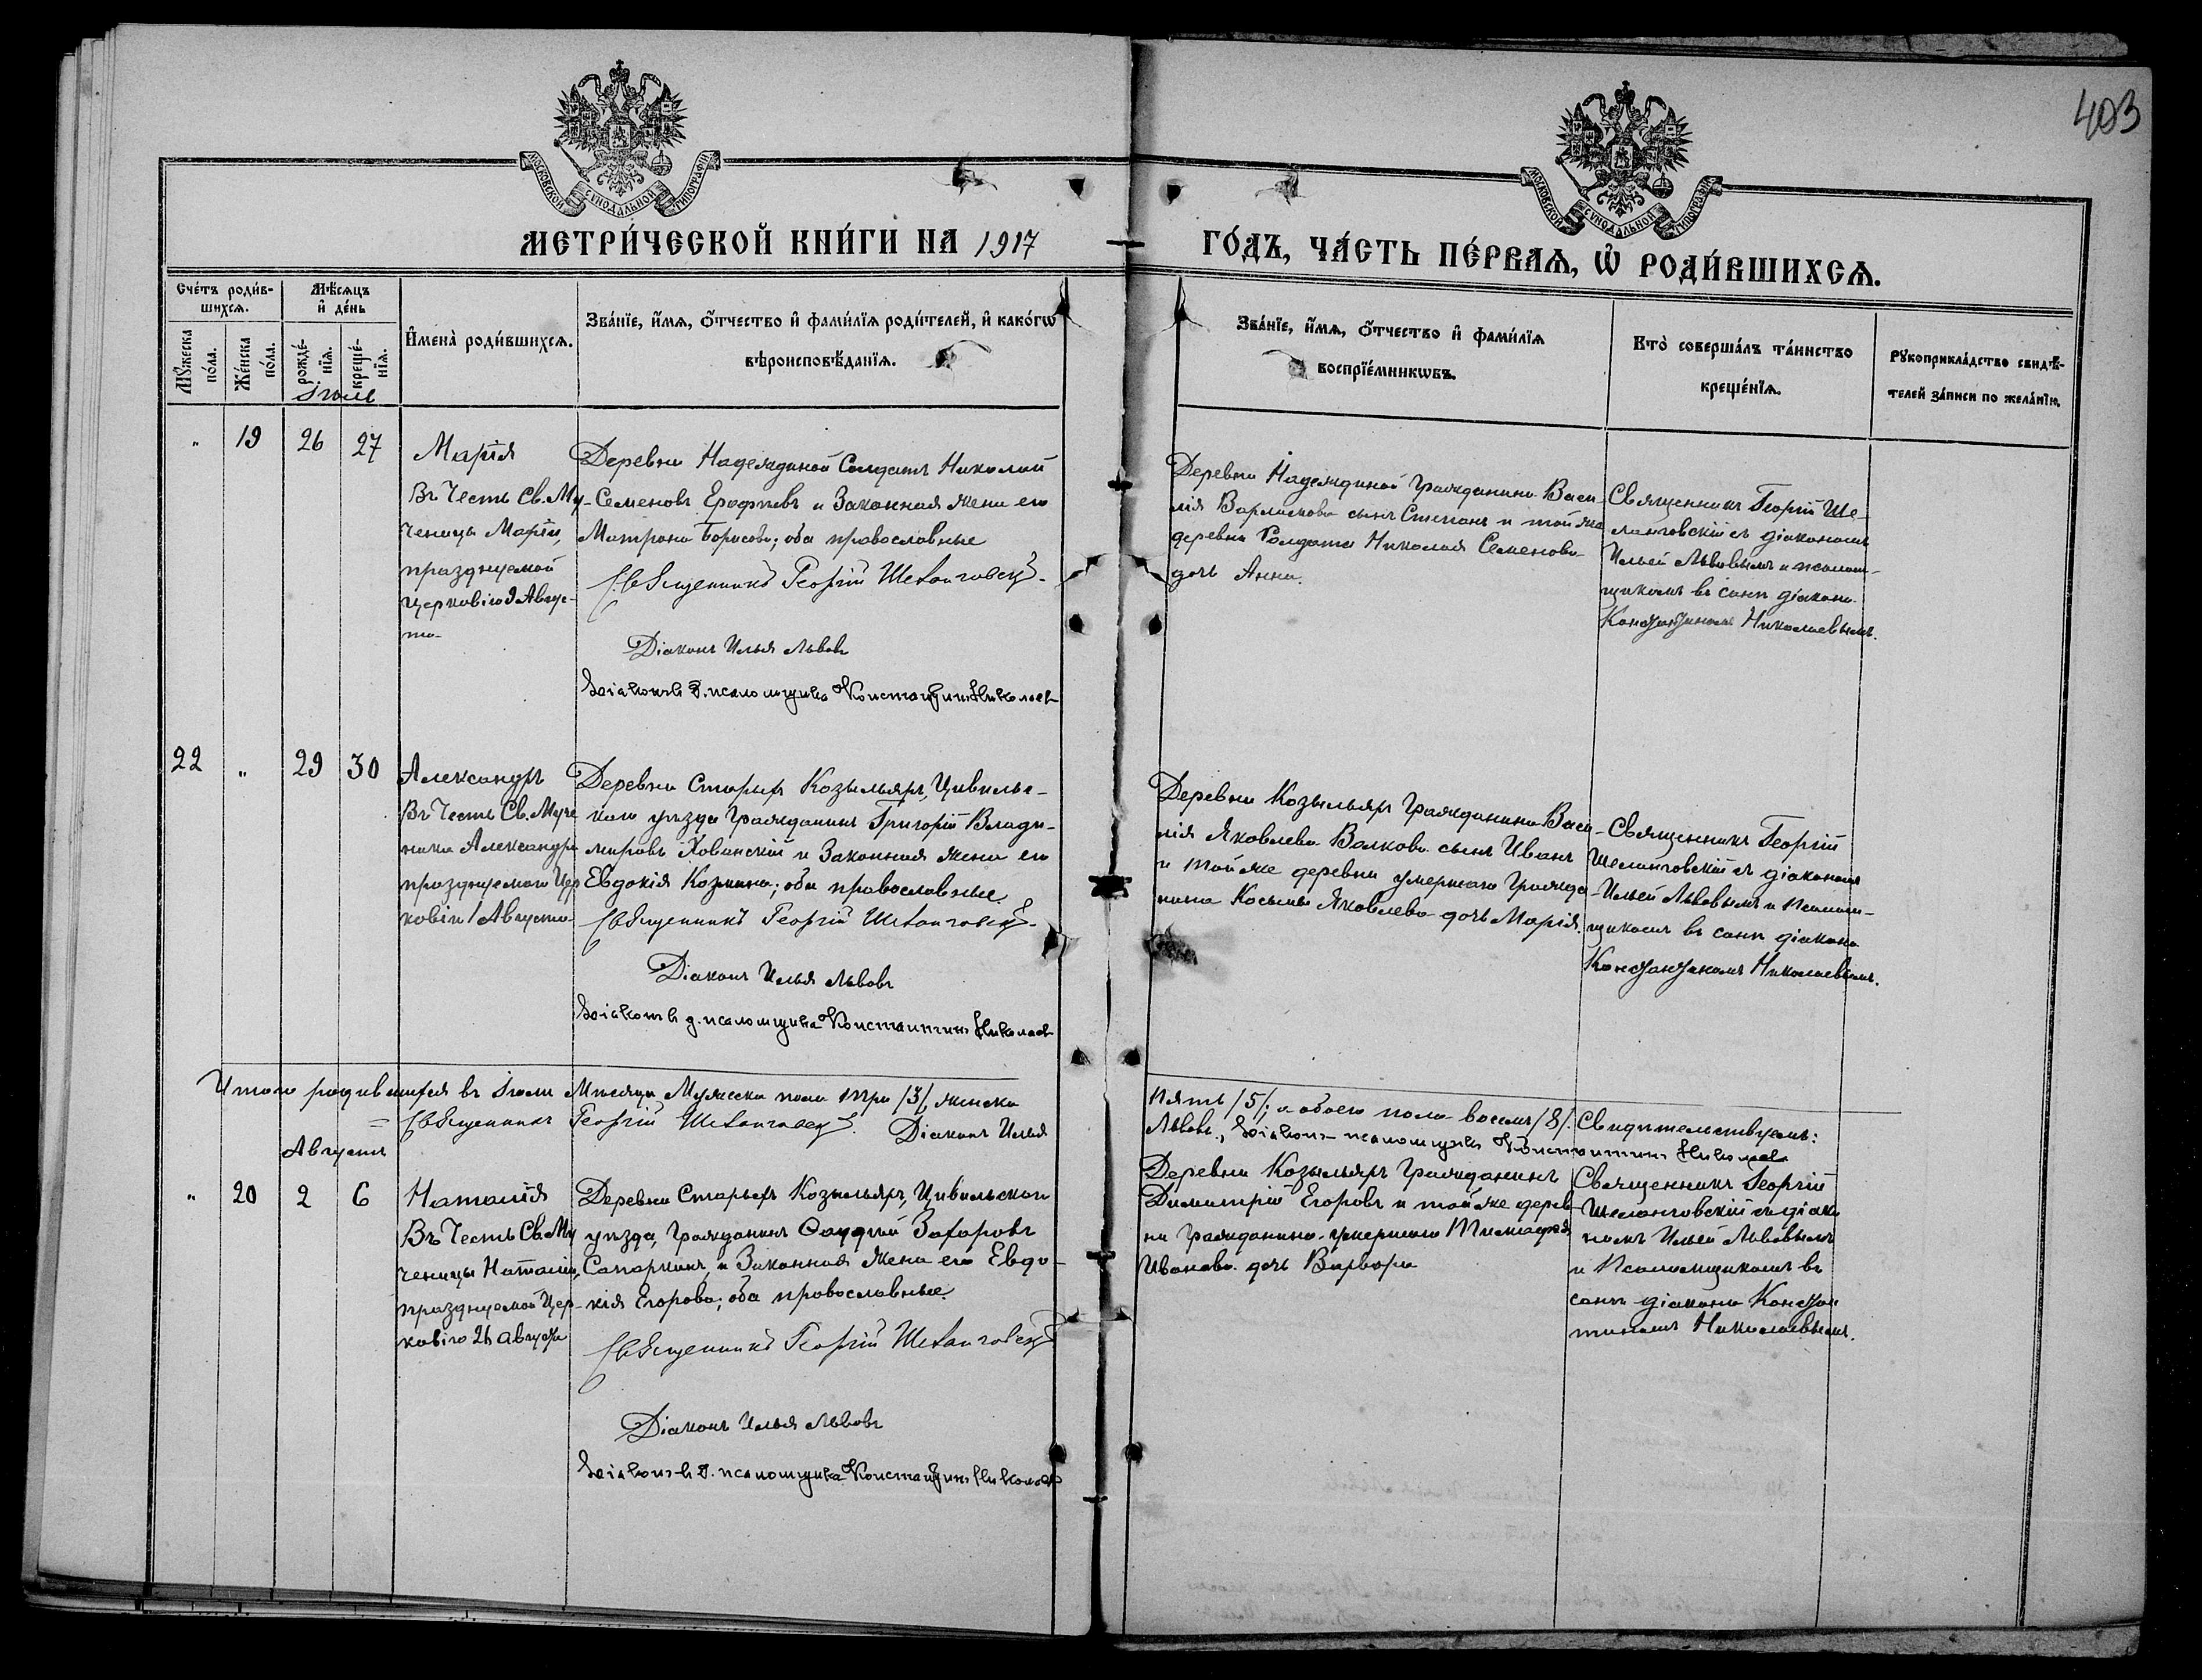 403
МОСКОВСКОЙ СѴНОДАЛЬНОЙ ТИПОГРАФІИ
МОСКОВСКОЙ СѴНОДАЛЬНОЙ ТИПОГРАФІИ
МЕТРИ́ЧЕСКОЙ КНИ́ГИ НА 1917
ГО́ДЪ, ЧА́СТЬ ПЕ́РВАѦ, Ѡ҆ РОДИ́ВШИХСѦ.
Сче́тъ роди́в-
шихсѧ.
Мѣ́сѧцъ
и҆ де́нь
Мꙋ́жеска
по́ла.
Же́нска
по́ла.
рожде́-
нїѧ.
креще́-
нїѧ.
И҆мена̀ роди́вшихсѧ.
Зва́нїе, и҆́мѧ, ѻ҆́тчество и҆ фами́лїѧ роди́телей, и҆ како́гѡ
вѣроисповѣ́данїѧ.
Зва́нїе, и҆́мѧ, ѻ҆́тчество и҆ фами́лїѧ
воспрїе́мникѡвъ.
Кто̀ соверша́лъ та́инство
креще́нїѧ.
Рꙋкоприкла́дство свидѣ́-
телей за́писи по жела́нїю.
Іюль
" 19 26 27
Марія
Въ Честь Св. Му-
ченицы Маріи,
празднуемой
церковію 9 Авгус-
та
Деревни Надеждиной Солдатъ Николай
Семеновъ Ерофѣевъ и Законная жена его
Матрона Борисова; оба православные
Священникъ Георгій Шелантовскій
Діаконъ Илья Львовъ
Діаконъ в д. псаломщика Константинъ Николаевъ
Деревни Надеждиной Гражданина Васи-
лія Варламова сынъ Степанъ и той же
деревни Солдата Николая Семенова
дочь Анна.
Священникъ Георгій Ше-
лантовскій съ діакономъ
Ильей Львовымъ и псалом-
щикомъ въ санѣ діакона
Константиномъ Николаевымъ.
22 " 29 30
Александръ
Въ Честь Св. Муче
ника Александра
празднуемаго Цер
ковію 1 Августа
Деревни Старыхъ Козыльяръ, Цивильс-
каго уѣзда Гражданинъ Григорій Влади-
мировъ Хованскій и Законная жена его
Евдокія Козмина; оба православные.
Священникъ Георгій Шелантовскій
Діаконъ Илья Львовъ
Діаконъ в д. псаломщика Константинъ Николаевъ
Деревни Козыльяръ Гражданина Васи-
лія Яковлева Волкова сынъ Иванъ
и той же деревни умершаго Гражда-
нина Косьмы Яковлева дочь Марія.
Священникъ Георгій
Шелантовскій съ діакономъ
Ильей Львовымъ и Псалом-
щикомъ въ санѣ діакона
Константиномъ Николаевымъ.
Итого родившихся въ Іюлѣ Мѣсяцѣ Мужеска пола три /3/, женска
пять /5/; а обоего пола восемь /8/. Свидѣтельствуемъ:
Священникъ Георгій Шелантовскій. Діаконъ Илья
Львовъ, Діаконъ псаломщикъ Константинъ Николаевъ
Августъ
" 20 2 6
Наталія
Въ Честь Св. Му
ченицы Наталіи,
празднуемой Цер-
ковію 26 Августа
Деревни Старыхъ Козыльяръ, Цивильскаго
уѣзда, Гражданинъ Захаровъ
Сапаркинъ, и Законная жена его Евдо-
кія Егорова; оба православные.
Священникъ Георгій Шелантовскій
Діаконъ Илья Львовъ
Діаконъ в д. псаломщика Константинъ Николаевъ
Деревни Козыльяръ Гражданинъ
Димитрій Егоровъ и той же дерев-
ни Гражданина умершаго Тимофея
Иванова дочь Варвара
Священникъ Георгій
Шелантовскій съ діако
номъ Ильей Львовымъ
и Псаломщикомъ въ
санѣ діакона Констан
тиномъ Николаевымъ.